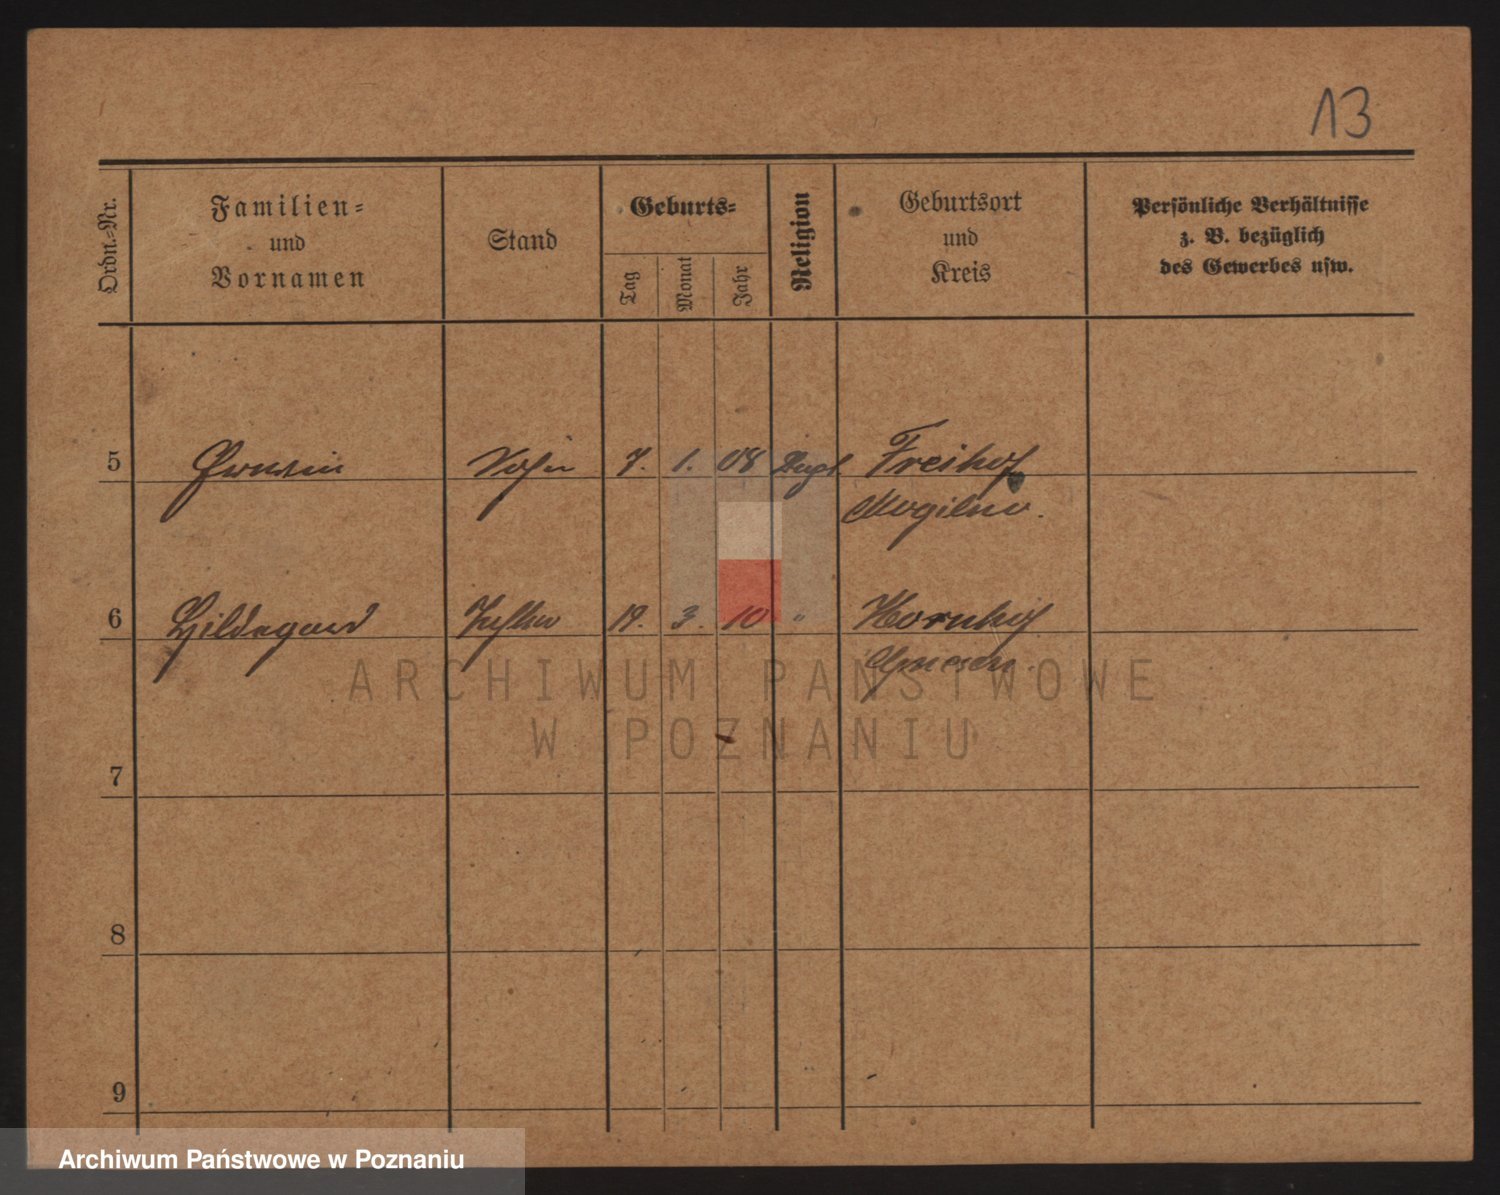 13
Ordn.-Nr.
Familien-
und
Vornamen
Stand
Geburts-
Tag
Monat
Jahr
Religion
Geburtsort
und
Kreis
Persönliche Verhältnisse
z. B. bezüglich
des Gewerbes usw.
5 Erwin Sohn 7. 1. 08 Freihof
Mogilno.
6 Hildegard Tochter 19. 3. 10 " Hornhof
Gnesen.
ARCHIWUM PAŃSTWOWE
W POZNANIU
7
8
9
Archiwum Państwowe w Poznaniu